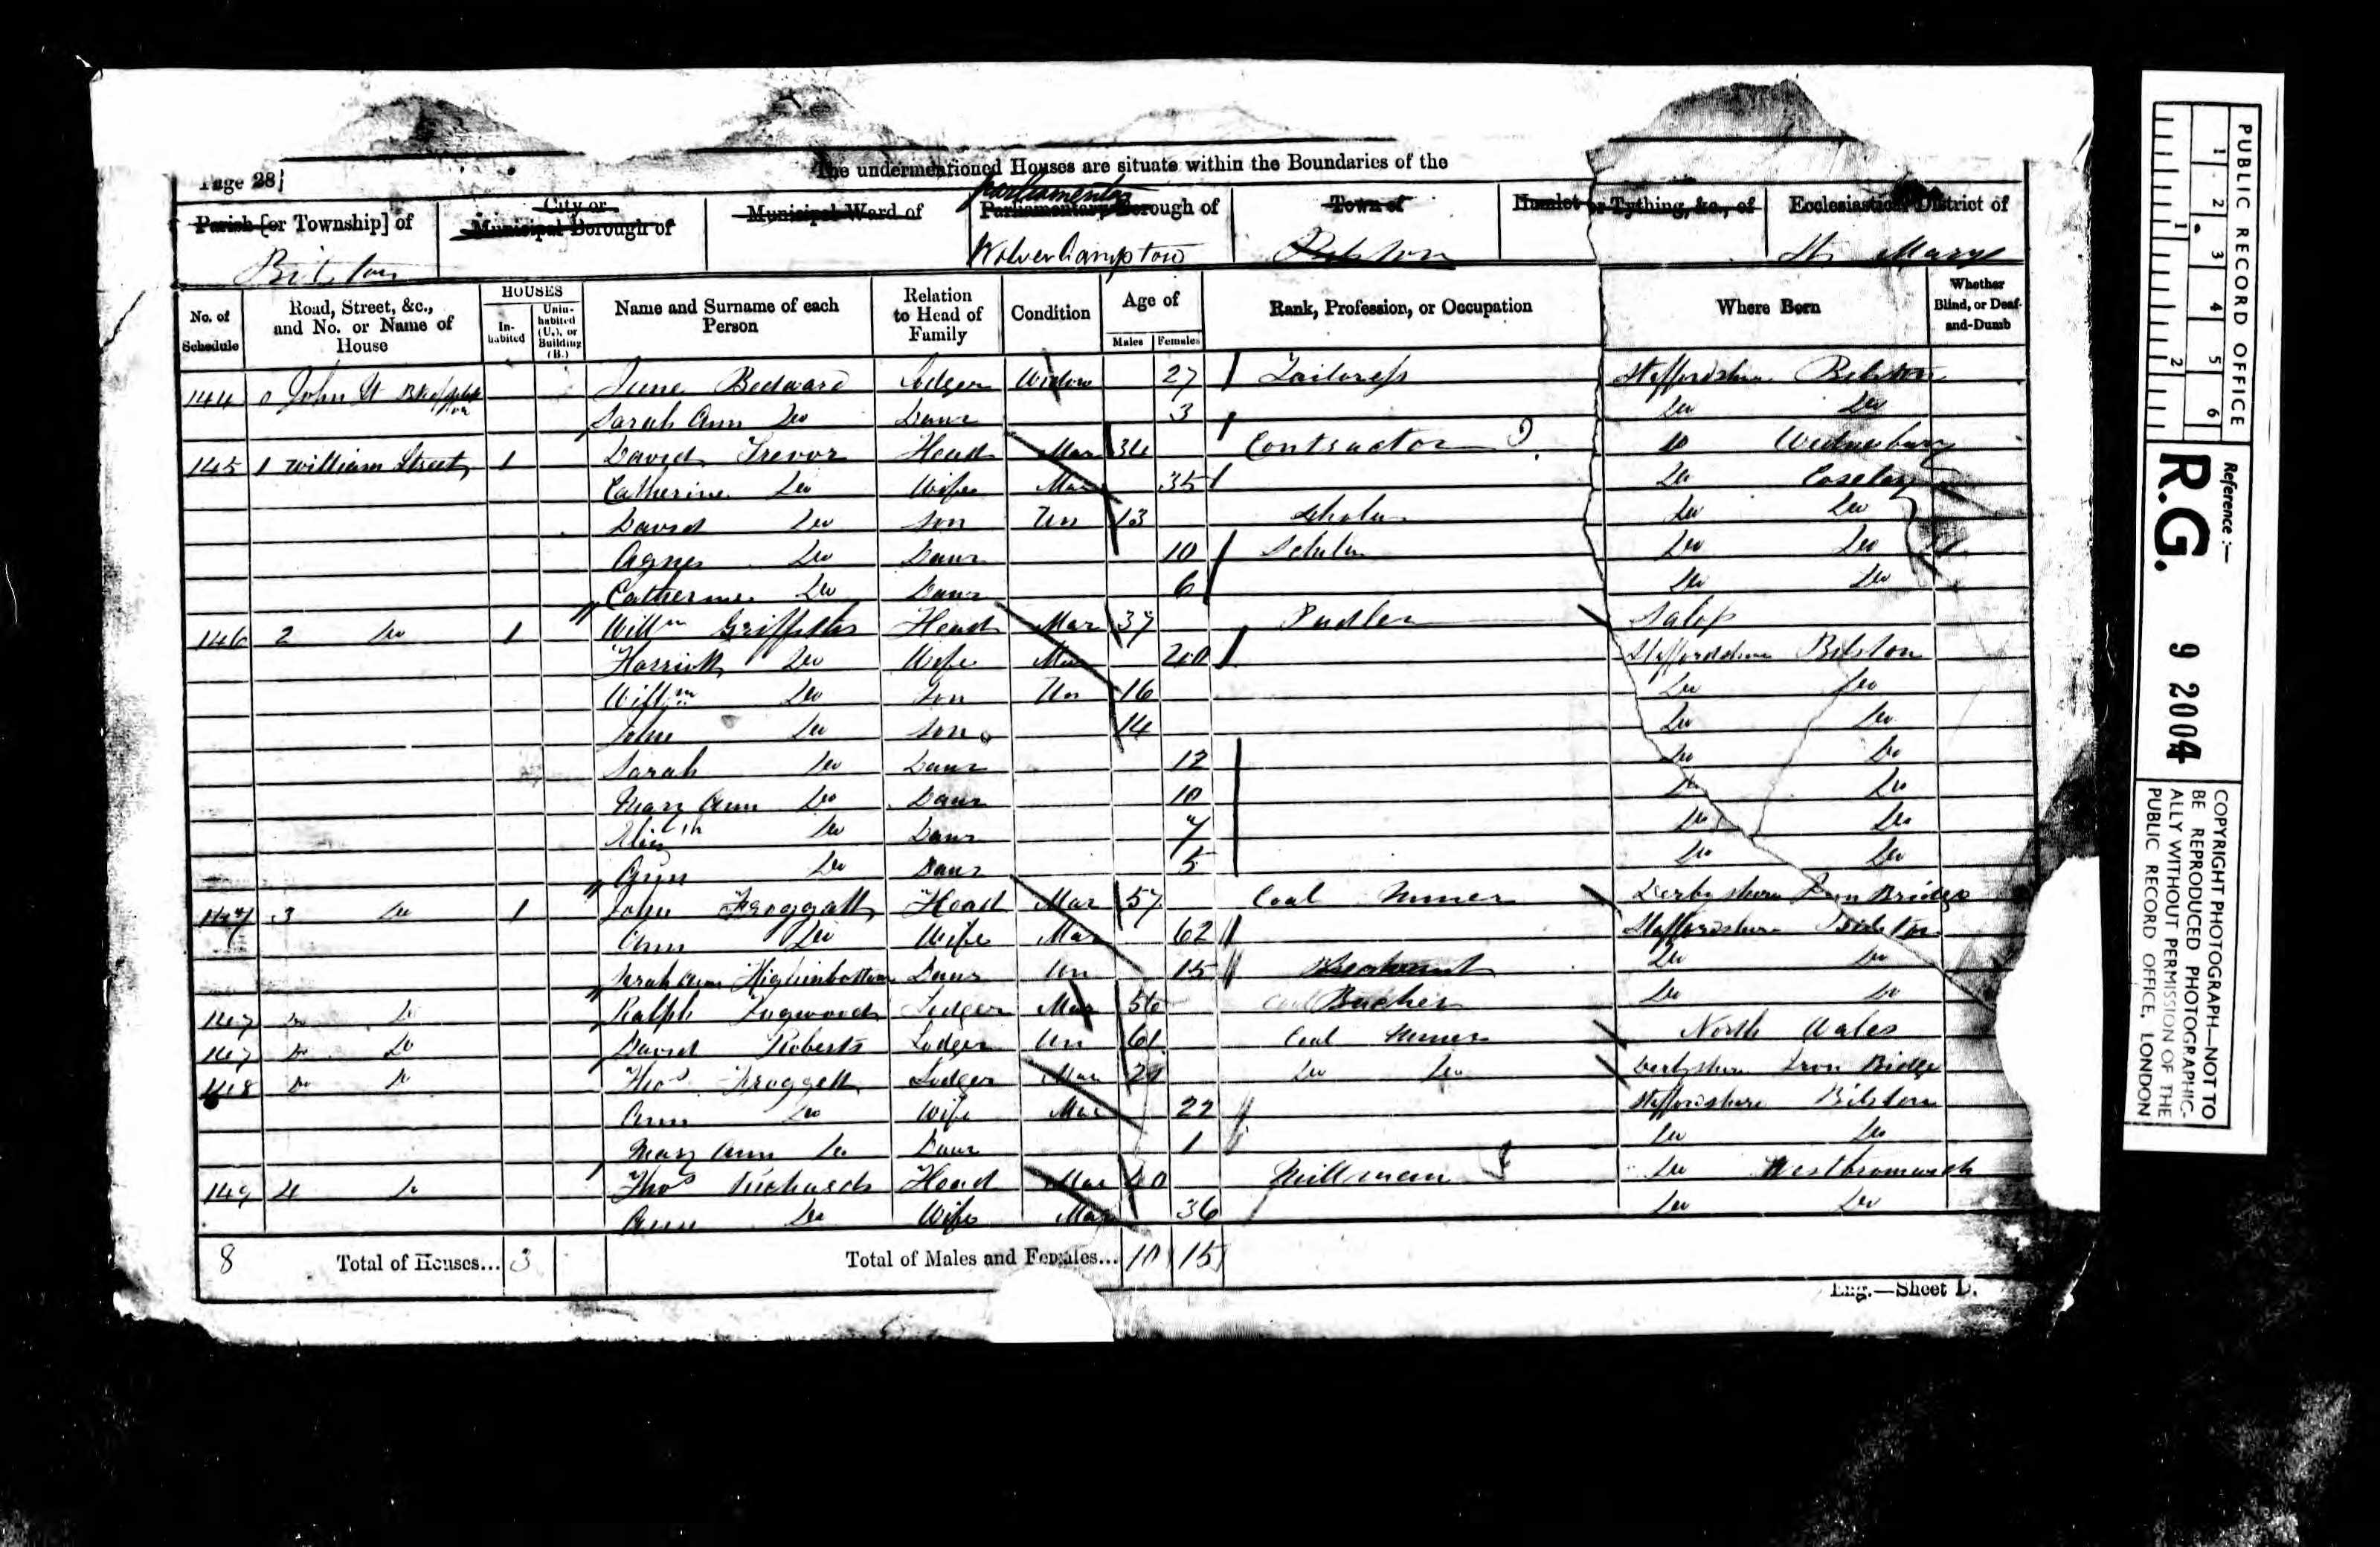 The undermentioned Houses are situate within the Boundaries of the
Page 28]
Parish [or Township] of
City or Municipal Borough of
Municipal Ward of
Parliamentary
Parliamentary Borough of
Town of
Hamlet or Tything, &c., of
Ecclesiastical District of
Bilston
Wolverhampton
Bilston
St Marys
No. of Schedule
Road, Street, &c., and No. or Name of House
HOUSES
In-habited
Unin-habited (U.), or Building (B.)
Name and Surname of each Person
Relation to Head of Family
Condition
Age of
Males
Females
Rank, Profession, or Occupation
Where Born
Whether Blind, or Deaf-and-Dumb
144 John St Jane Bedward Lodger Widow 27 Tailoress Staffordshire Bilston
Sarah Ann Do Daur 3 Do Do
145 1 William Street 1 David Trevor Head Mar 34 Contractor Do Wednesbury
Catherine Do Wife Mar 35 Do Coseley
David Do Son Un 13 Scholar Do Do
Agnes Do Daur 10 Scholar Do Do
Catherine Do Daur 6 Do Do
146 2 Do 1 Willm Griffiths Head Mar 37 Pudler Salop
Harriett Do Wife Mar Staffordshire Bilston
Willm Do Son Un 16 Do Do
John Do Son 14 Do Do
Sarah Do Daur 12 Do Do
Mary Ann Do Daur 10 Do Do
Do Daur 7 Do Do
Ann Do Daur 5 Do Do
147 3 Do 1 John Froggatt Head Mar 57 Coal Miner Derbyshire Iron Bridge
Ann Do Wife Mar 62 Staffordshire Bilston
Sarah Ann Higginbottom Daur Un 15 Do Do
147 Do Do Ralph Lodger Mar 56 Do Do
147 Do Do David Roberts Lodger Un 61 Coal Miner North Wales
148 Do Do Thos Froggatt Lodger Mar 21 Do Do Derbyshire Iron Bridge
Ann Do Wife Mar 22 Staffordshire Bilston
Mary Ann Do Daur 1 Do Do
149 4 Do Thos Richards Head Mar 40 Millman Do Westbromwich
Ann Do Wife Mar 36 Do Do
8 Total of Houses... 3 Total of Males and Females... 10 15
Eng.—Sheet D.
PUBLIC RECORD OFFICE
1 2 3 4 5 6
1 2
Reference :—
R.G. 9 2004
COPYRIGHT PHOTOGRAPH—NOT TO
BE REPRODUCED PHOTOGRAPHIC-
ALLY WITHOUT PERMISSION OF THE
PUBLIC RECORD OFFICE, LONDON